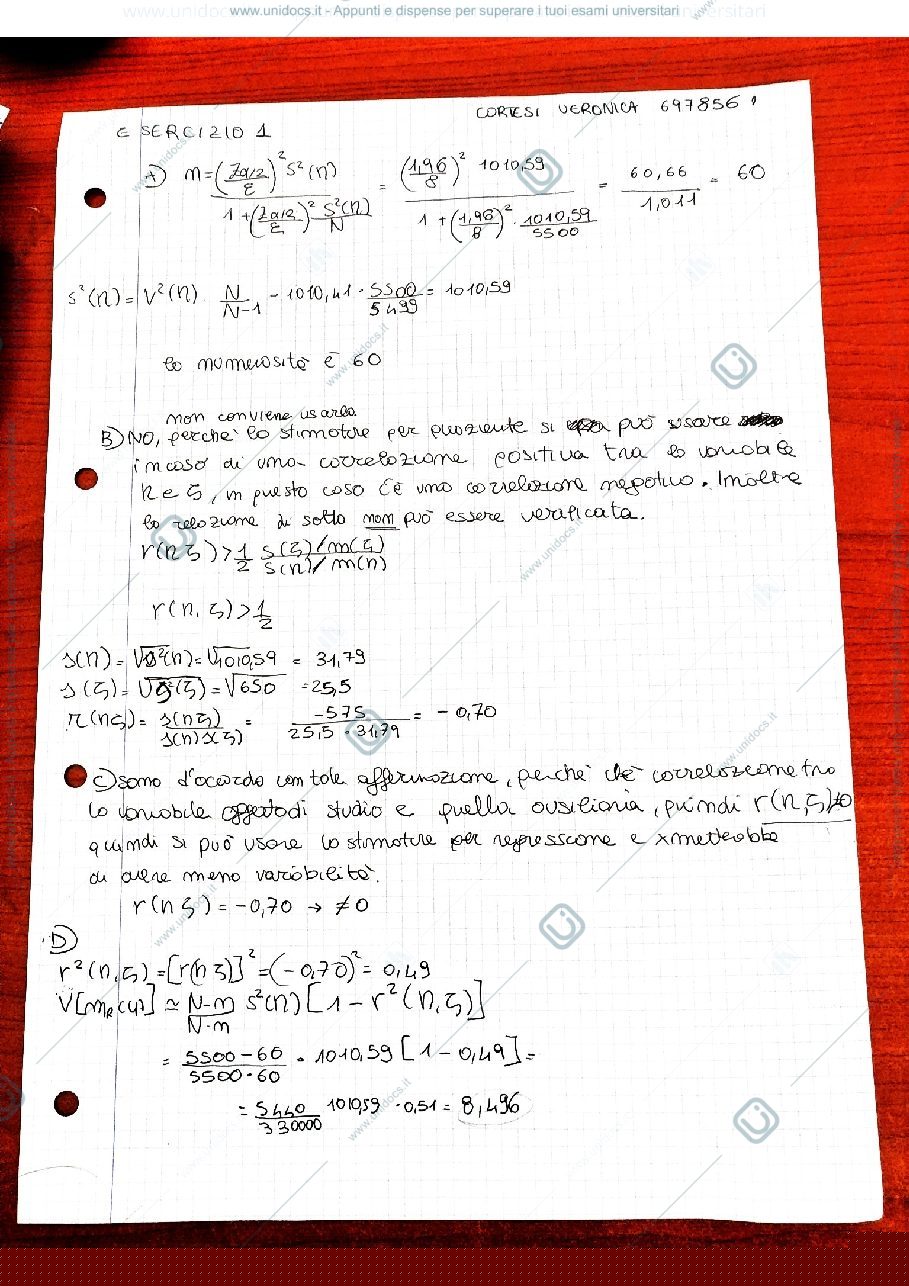 www.unidocs.it - Appunti e dispense per superare i tuoi esami universitari
CORTESI VERONICA 697856 1
ESERCIZIO 1
A) n = (Zα/2/ε)² s²(η) / 1 + (Zα/2/ε)² s²(η)/N = (1,96/8)² 1010,59 / 1 + (1,96/8)² · 1010,59/5500 = 60,66/1,011 = 60
s²(η) = V²(η) N/N-1 - 1010,41 · 5500/5499 = 1010,59
la numerosità è 60
non conviene usarla
B) NO, perchè lo stimatore per quoziente si può usare
in caso di una correlazione positiva tra la variabile
η e ζ, in questo caso c'è una correlazione negativa. Inoltre
la relazione di sotto non può essere verificata.
r(η ζ) > 1/2 s(ζ)/m(ζ) / s(η)/m(η)
r(η, ζ) > 1/2
s(η) = √s²(η) = √1010,59 = 31,79
s(ζ) = √s²(ζ) = √650 = 25,5
r(ηζ) = s(ηζ)/s(η)s(ζ) = -575/25,5 · 31,79 = -0,70
C) sono d'accordo con tale affermazione, perchè c'è correlazione tra
la variabile oggetto di studio e quella ausiliaria, quindi r(η,ζ)≠0
quindi si può usare lo stimatore per regressione e xmetterebbe
di avere meno variabilità.
r(η ζ) = -0,70 → ≠0
D)
r²(η,ζ) = [r(η ζ)]² = (-0,70)² = 0,49
V[mR(y)] ≃ N-n/N·n s²(η) [1 - r²(η,ζ)]
= 5500-60/5500·60 · 1010,59 [1 - 0,49] =
= 5440/330000 1010,59 · 0,51 = 8,496